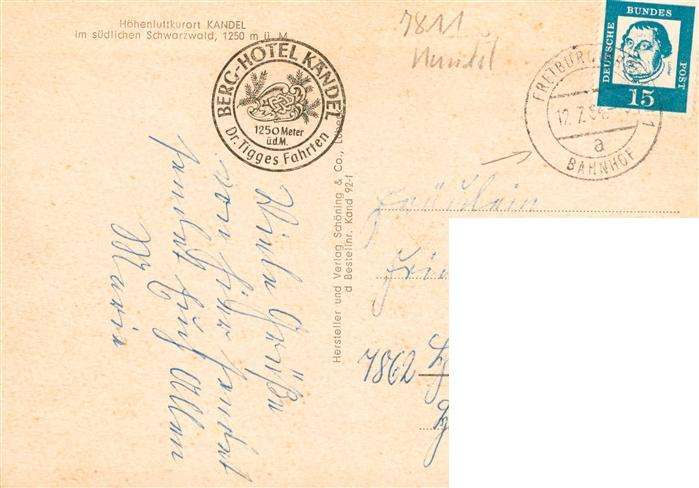 Höhenluftkurort KANDEL
im südlichen Schwarzwald, 1250 m ü. M.
BERG-HOTEL KANDEL
1250 Meter
ü.d.M.
Dr. Tigges Fahrten
7811
DEUTSCHE BUNDES POST
15
FREIBURG
12.7.
a
BAHNHOF
Hersteller und Verlag Schöning & Co.,
Bestellnr. Kand 92-1
Viele Grüße
von hier sendet
Euch Allen
Maria
Fräulein
7862